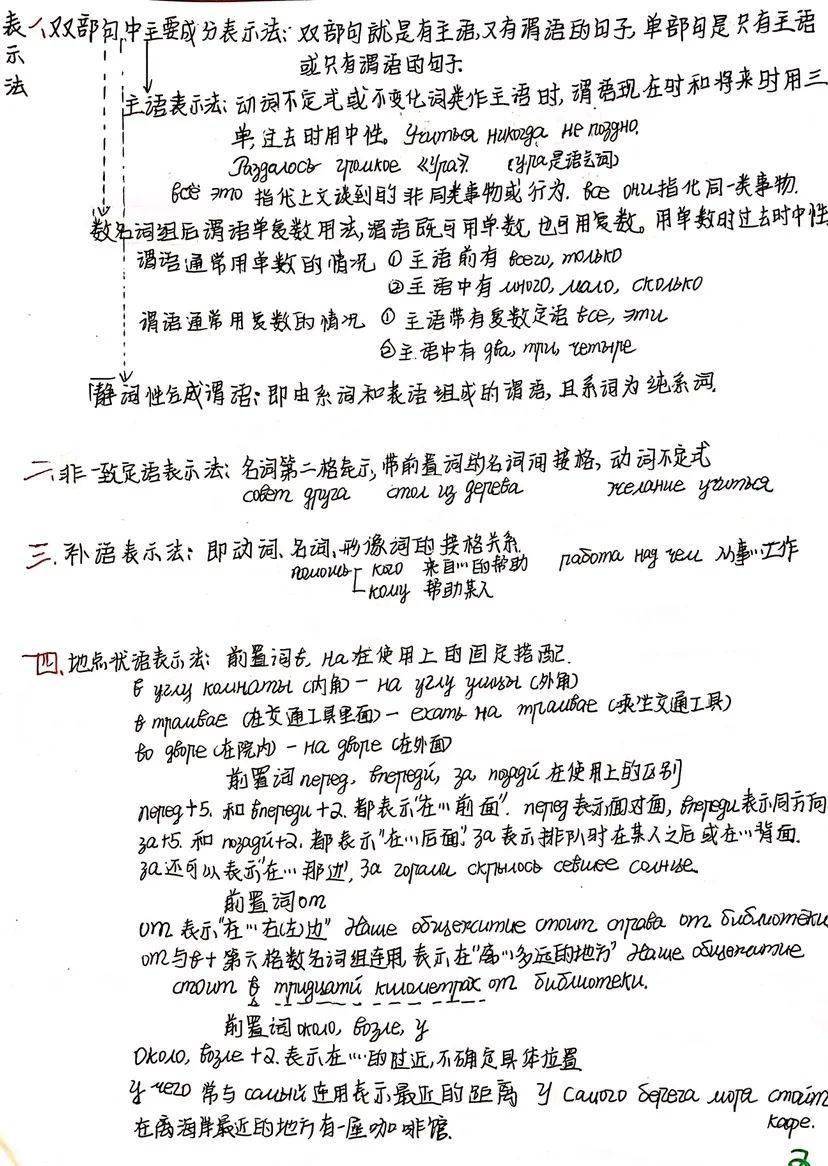 表示法
一、双部句中主要成分表示法：双部句就是有主语，又有谓语的句子，单部句是只有主语
或只有谓语的句子.
主语表示法：动词不定式或不变化词类作主语时，谓语现在时和将来时用三
单，过去时用中性。Учиться никогда не поздно.
Раздалось громкое «Ура». (ура是语气词)
всё это 指代上文谈到的非同类事物或行为. все они指代同一类事物.
数名词组后谓语单复数用法，谓语既可用单数，也可用复数。用单数时过去时中性
谓语通常用单数的情况 ①主语前有 всего, только
②主语中有 много, мало, сколько
谓语通常用复数的情况 ①主语带有复数定语 все, эти
②主语中有 два, три, четыре
静词性合成谓语：即由系词和表语组成的谓语，且系词为纯系词.
二、非一致定语表示法：名词第二格表示，带前置词的名词间接格，动词不定式
совет друга стол из дерева желание учиться
三、补语表示法：即动词、名词、形像词的接格关系.
помощь кого 来自…的帮助 работа над чем 从事…工作
кому 帮助某人
四、地点状语表示法：前置词в, на在使用上的固定搭配.
в углу комнаты (内角) — на углу улицы (外角)
в трамвае (在交通工具里面) — ехать на трамвае (乘坐交通工具)
во дворе (在院内) — на дворе (在外面)
前置词 перед, впереди, за, позади 在使用上的区别
перед+5. 和 впереди+2. 都表示"在…前面". перед 表示面对面, впереди表示同方向
за+5. 和 позади+2. 都表示"在…后面". за 表示排队时在某人之后或在…背面.
за还可以表示"在…那边", За горами скрылось севшее солнце.
前置词от
от 表示"在…右(左)边" Наше общежитие стоит справа от библиотеки
от与в+第六格数名词组连用，表示在"离…多远的地方" Наше общежитие
стоит в тридцати километрах от библиотеки.
前置词 около, возле, у
Около, возле +2. 表示在…的附近，不确定具体位置
у чего 常与 самый连用表示最近的距离 У самого берега моря стоит
кафе.
在离海岸最近的地方有一座咖啡馆.